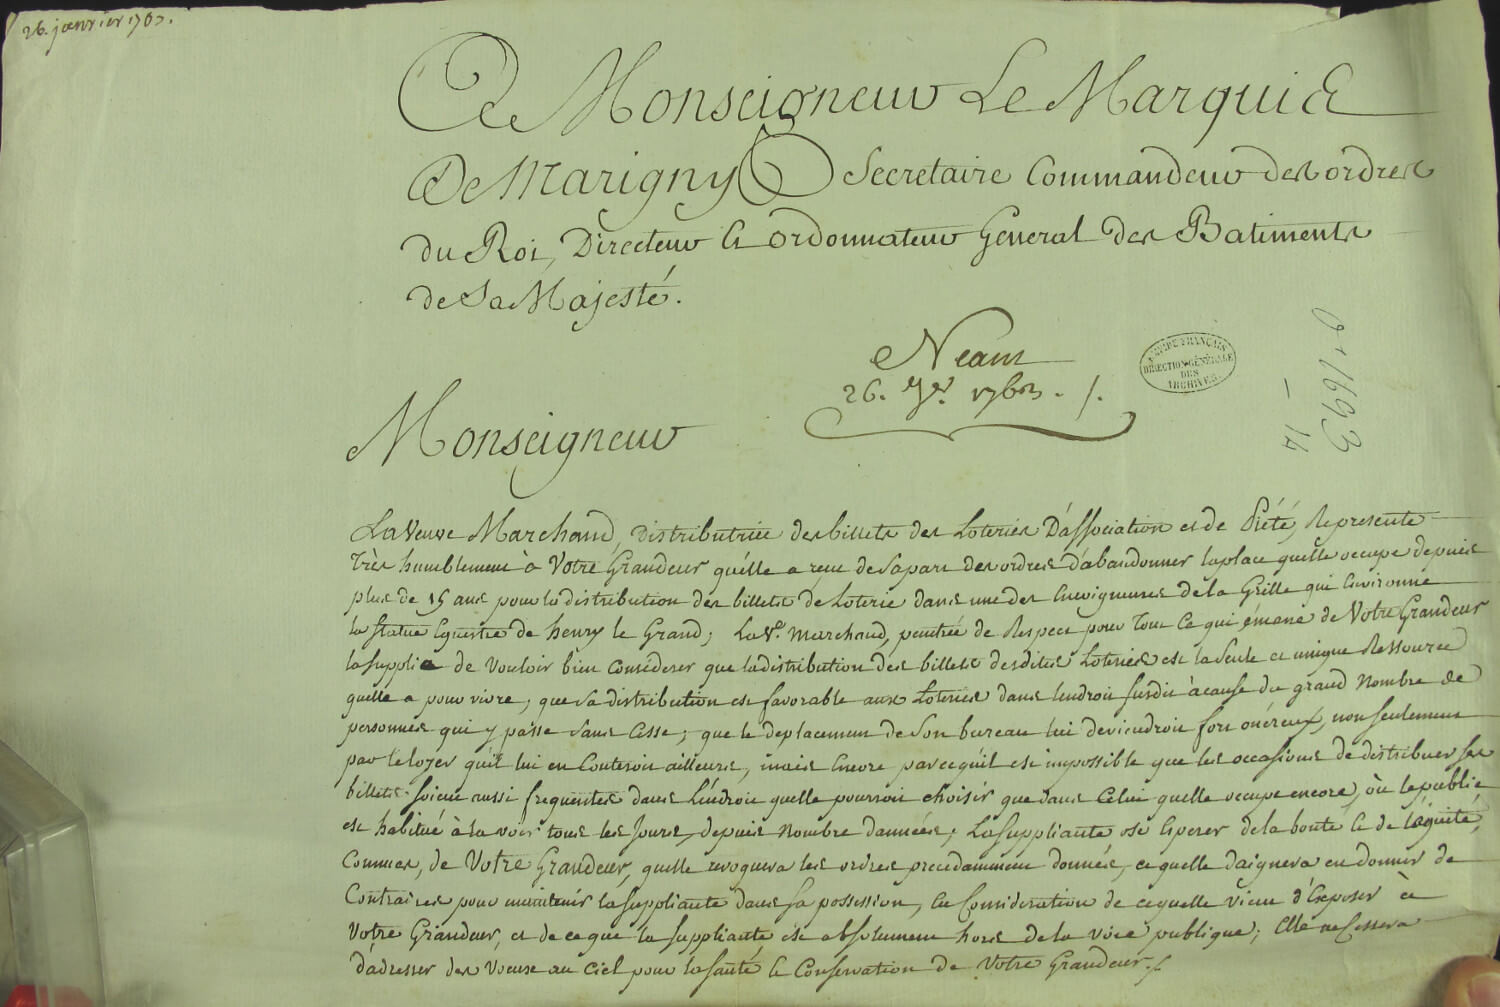 26. janvier 1763.
A Monseigneur Le Marquis
De Marigny Secretaire Commandeur des ordres
du Roi, Directeur & ordonnateur General des Batiments
de Sa Majesté.
Neant
26. Jer. 1763. /.
ARCHIVES
DIRECTION GÉNÉRALE
DES
ARCHIVES
O 1 1693
14
Monseigneur
La Veuve Marchand, distributrice des billets des Loteries D'association et de Piété, Represente
Très humblement à Votre Grandeur qu'elle a reçu de sa part des ordres d'abandonner la place quelle occupe depuis
plus de 15 ans pour la distribution des billets de Loterie dans une des Encoignures de la Grille qui Environne
la statue Equestre de henry le Grand; La Ve. Marchand, penetrée de Respect pour Tout Ce qui émane de Votre Grandeur
la supplie de vouloir bien Considerer que la distribution des billets desdites Loteries est la Seule et unique Ressource
quelle a pour vivre, que sa distribution est favorable aux Loteries dans lendroit susdit à cause du grand Nombre de
personnes qui y passe sans Cesse; que le deplacement de Son bureau lui deviendroit fort onéreux, non seulement
par le loyer qu'il lui en Couteroit ailleurs, mais Encore parce qu'il est impossible que les occasions de distribuer ses
billets soient aussi frequentes dans l'endroit quelle pourroit choisir que dans Celui quelle occupe encore, où le public
est habitué à la voir tous les Jours, depuis Nombre dannées; La suppliante ose Esperer de la bonté & de l'équité,
Connues, de Votre Grandeur, quelle revoquera les ordres precedamment donnés, et quelle daignera en donner de
Contraires pour maintenir la suppliante dans sa possession, En Consideration de ce quelle vient d'Exposer à
Votre Grandeur, et de ce que la suppliante est absolument hors de la voie publique; Elle ne Cessera
d'adresser des Voeux au Ciel pour la santé & Conservation de Votre Grandeur./.